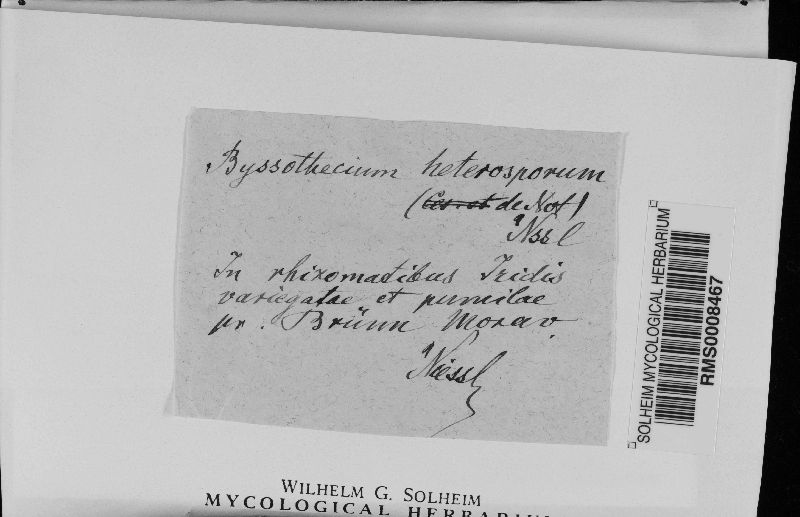 Byssothecium heterosporum
(Ces. et de Not)
Nssl
In rhizomatibus Iridis
variegatae et pumilae
pr. Brünn Morav.
Niessl
SOLHEIM MYCOLOGICAL HERBARIUM
RMS0008467
WILHELM G. SOLHEIM
MYCOLOGICAL HERBARIUM